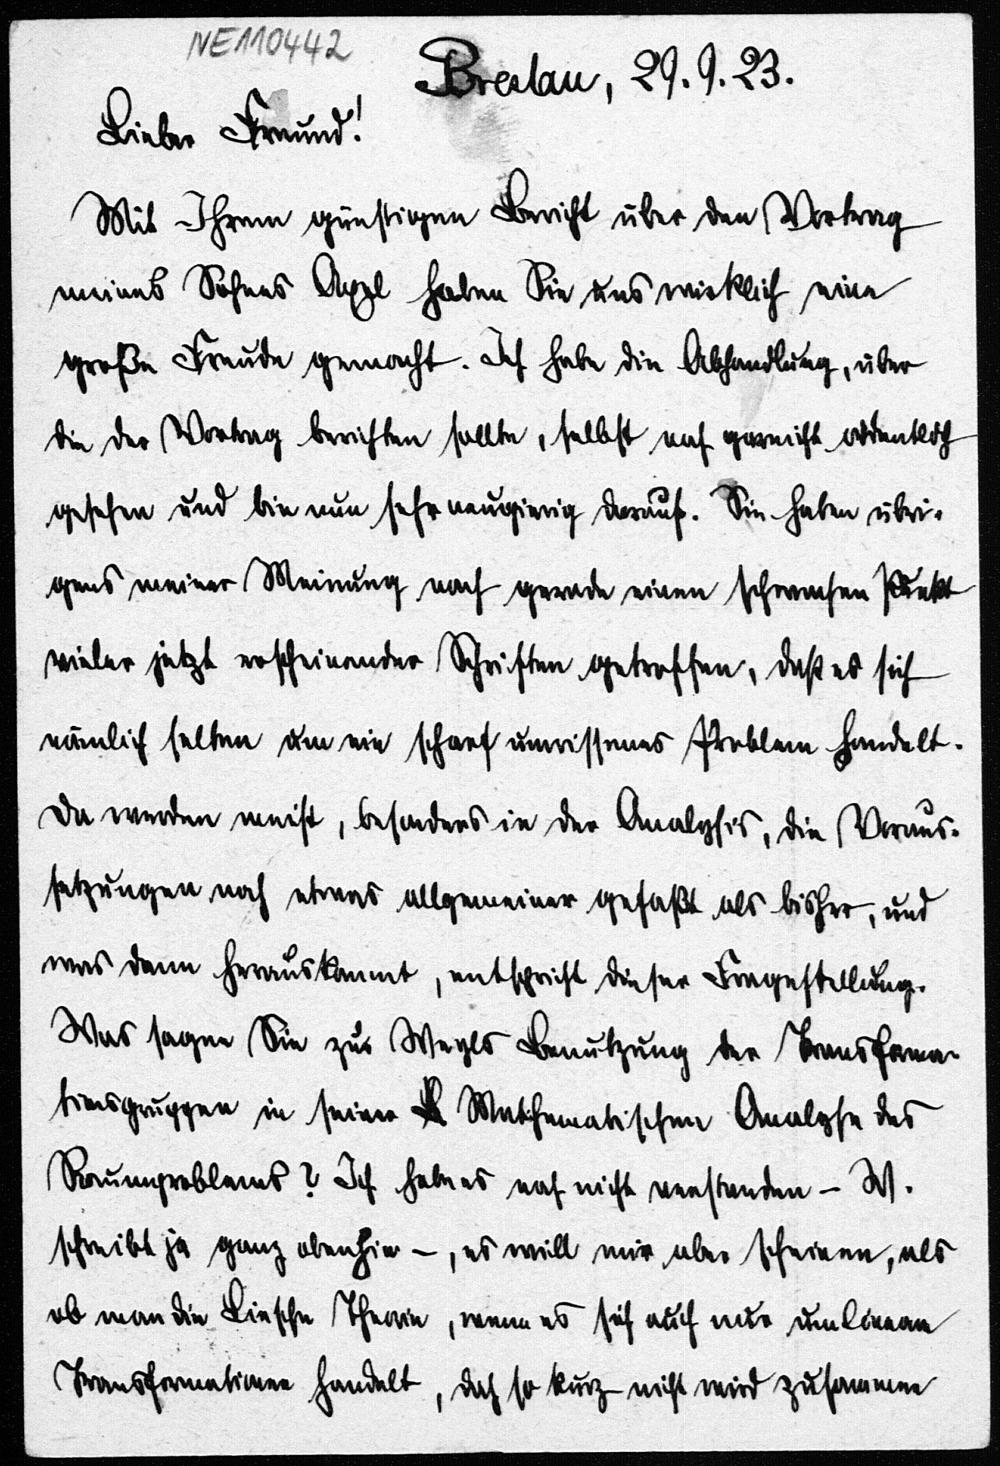 NE110442
Breslau, 29.9.23.
Lieber Freund!
Mit Ihrem günstigen Bericht über den Vortrag
meines Sohnes Axel haben Sie uns wirklich eine
große Freude gemacht. Ich habe die Abhandlung, über
die der Vortrag berichten sollte, selbst noch garnicht ordentlich
gesehen und bin nun sehr neugierig darauf. Sie haben übri-
gens meiner Meinung nach gerade einen schwachen Punkt
vieler jetzt erscheinender Schriften getroffen, daß es sich
nämlich selten um ein scharf umrissenes Problem handelt.
Da werden meist, besonders in der Analysis, die Voraus-
setzungen noch etwas allgemeiner gefaßt als bisher, und
was dann herauskommt, entspricht dieser Fragestellung.
Was sagen Sie zur Weyls Benutzung der Transforma-
tionsgruppen in seiner Mathematischen Analyse des
Raumproblems? Ich habe es noch nicht verstanden – W.
schreibt ja ganz obenhin –, es will mir aber scheinen, als
ob man die Liesche Theorie, wenn es sich auch nur um lineare
Transformationen handelt, doch so kurz nicht wird zusammen